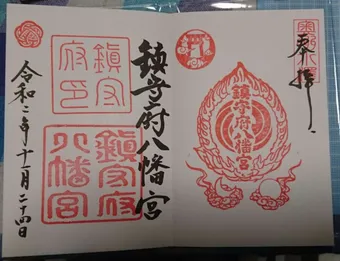 奉拝
鎮守府八幡宮
鎮守府八幡宮
令和二年十一月二十四日
鎮守府印
鎮守府八幡宮